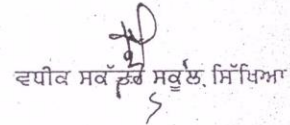 ਵਧੀਕ ਸਕੱਤਰ ਸਕੂਲ, ਸਿੱਖਿਆ